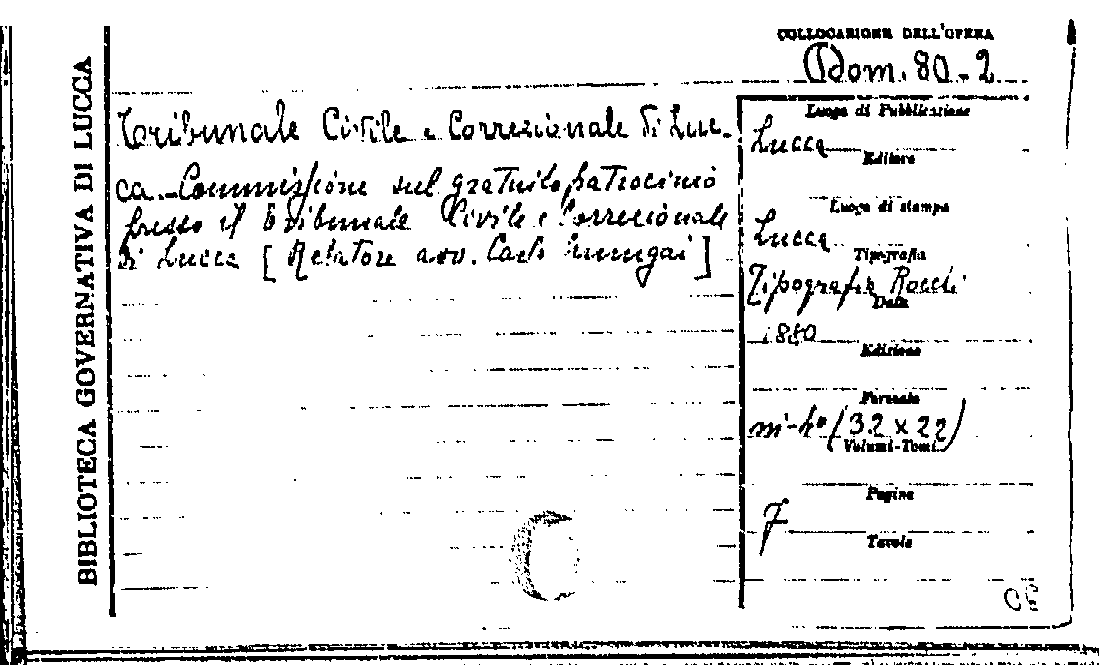 BIBLIOTECA GOVERNATIVA DI LUCCA
COLLOCAZIONE DELL'OPERA
Dom. 80-2
Tribunale Civile e Correzionale di Luc-
ca - Commissione sul gratuito patrocinio
presso il Tribunale Civile e Correzionale
di Lucca [Relatore avv. Carlo
]
Luogo di Pubblicazione
Lucca
Editore
Luogo di stampa
Lucca
Tipografia
Tipografia Rocchi
Data
1880
Edizione
Formato
in-4° (32 x 22)
Volumi-Tomi
Pagine
7
Tavole